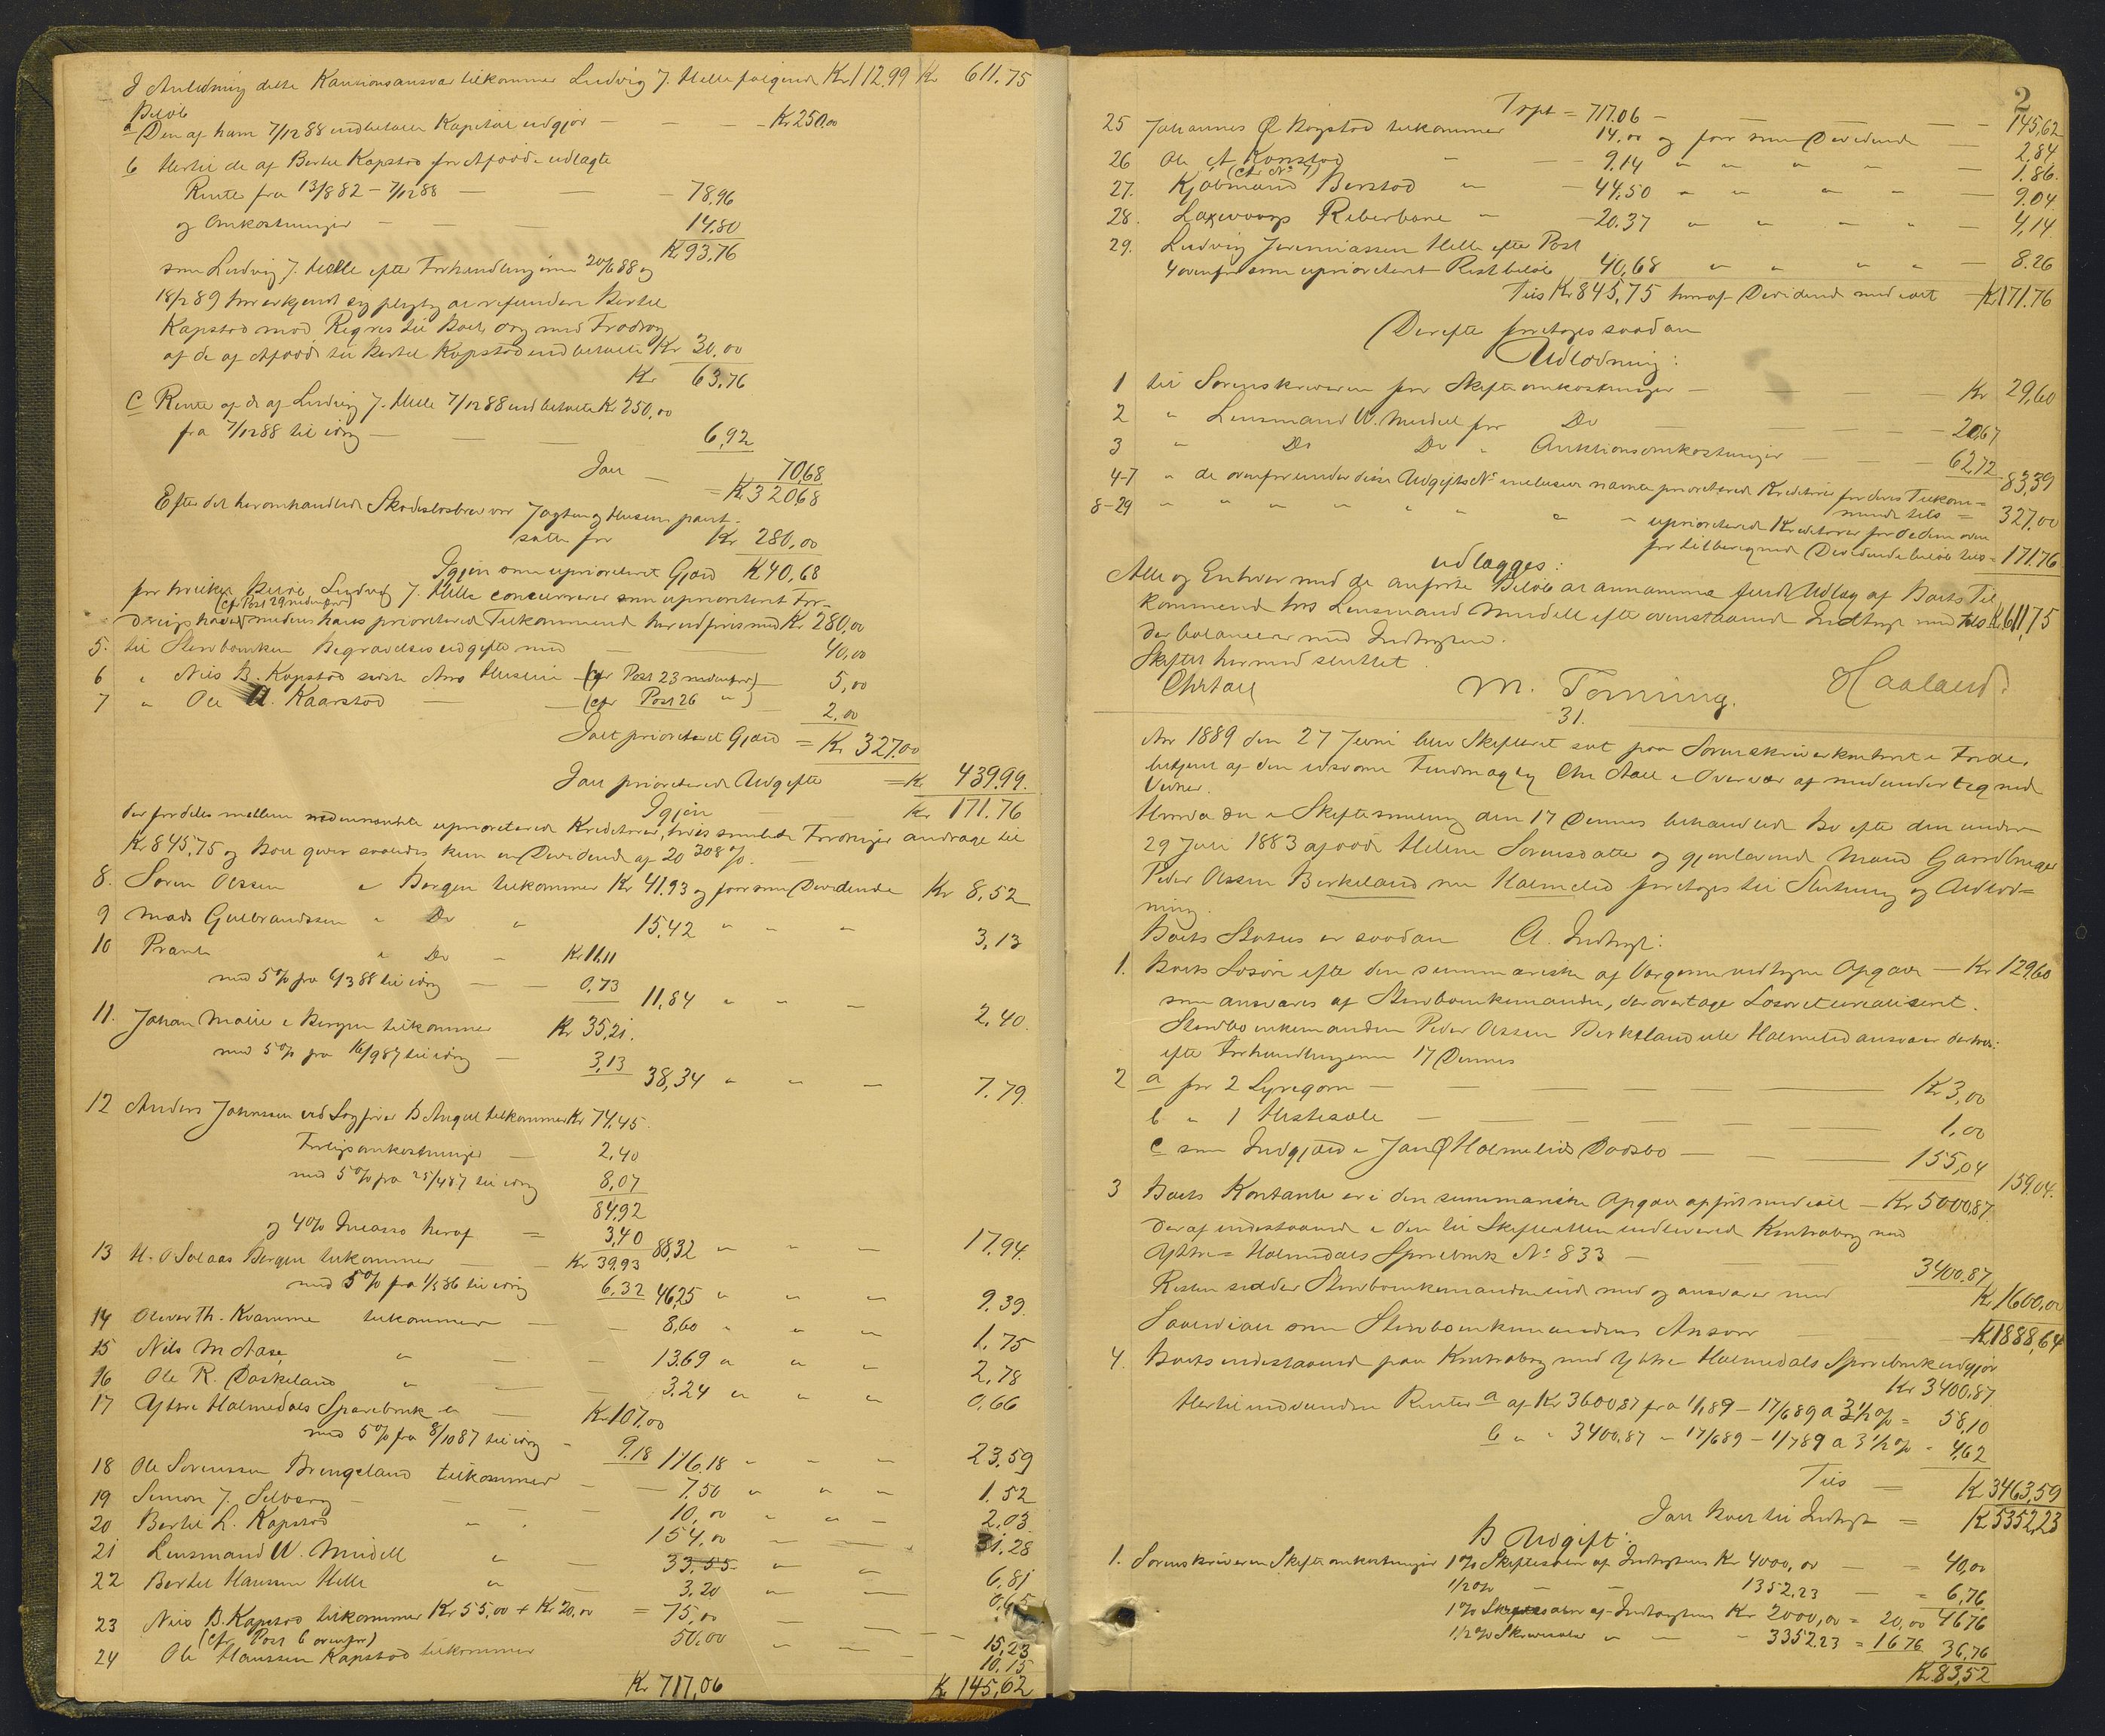 I Anledning dette Kautionsansvar tilkommer Ludvig J. Helle følgende Kr 112.99 Kr 611.75
Beløb
a Den af ham 7/12 88 indbetalte Kapital udgjør — — — Kr 250,00
b Hertil de af Bertel Kapstad for Afdøde udlagte
Rente fra 13/8 82 – 7/12 88 — — — 78,96
og Omkostninger — — — 14.80
Kr 93,76
som Ludvig J. Helle efter Forhandlingerne 20/6 88 og
18/2 89 har erkjendt sig pligtig at refundere Bertel
Kapstad mod Regres til Boet, dog med Fradrag
af de af Afdøde til Bertel Kapstad indbetalte Kr 30,00
Kr 63,76
c Rente af de af Ludvig J. Helle 7/12 88 indbetalte Kr 250,00
fra 7/12 88 til idag — — — 6,92
Ialt — 70,68
= Kr 320,68
Efter det heromhandlede Skadesløsbrev var Jagten og Husene pant-
satte for Kr 280,00
Igjen som uprioriteret Gjæld Kr 40,68
for hvilket Beløb Ludvig J. Helle concurrerer som uprioriteret For-
(cfr Post 29 nedenfor)
dringshaver medens hans prioriterede Tilkommende her udføres med Kr 280,00
5. til Stervboenken Begravelsesudgifter med — 40,00
6 " Nils B. Kapstad sidste Aars Husleie – (cfr Post 23 nedenfor) — 5,00
7 " Ole A. Kaarstad — — (cfr Post 26 ") — 2.00
Ialt prioriteret Gjæld = Kr 327.00
Ialt prioriterede Udgifter = Kr 439.99.
Igjen Kr 171.76
der fordeles mellem nedennævnte uprioriterede Kreditorer, hvis samlede Fordringer andrage til
Kr 845,75 og Boet giver saaledes kun en Dividende af 20 308 %.
8. Søren Olsen i Bergen tilkommer Kr 41.93 og faar som Dividende Kr 8,52
9 Mads Gulbrandssen i Do " 15,42 " " " 3,13
10 Prante i Do " Kr 11.11
med 5% fra 6/3 88 til idag — — 0,73 11,84 " " — 2,40.
11. Johan Marie i Bergen tilkommer Kr 35,21.
med 5% fra 16/9 87 til idag — 3,13 38,34 " " — 7.79
12 Anders Johnssen ved Sagfører B Angell tilkommer Kr 74.45.
Forligsomkostninger — 2,40
med 5% fra 25/4 87 til idag 8,07
84,92
og 4% Incasso heraf = 3,40 88,32 " " — 17.94.
13 H. O Solaas Bergen tilkommer — Kr 39,93
med 5% fra 1/5 86 til idag 6,32 46,25 " " — 9.39.
14 Oliver Th. Kvamme tilkommer — — 8,60 " " " 1,75
15 Nils M Aase " — — 13.69 " " " 2,78
16 Ole R. Daskeland " — — 3.24 " " " 0,66
17 Ytre Holmedals Sparebank " — Kr 107,00
med 5% fra 8/10 87 til idag — 9.18 116,18 " " — 23.59
18 Ole Sørenssen Bringeland tilkommer — — 7.50 " " " 1.52
19 Simon J. Solberg — — — 10,00 " " — 2,03
20 Bertel L. Kapstad " " — 154,00 " — — 31,28
21 Lensmand W. Meidell " — 33,55 " — 6,81
22 Bertel Hanssen Helle " — 3.20 " — 0,65
23 Nils B. Kapstad tilkommer Kr 55,00 + Kr 20,00 = 75,00 — — 15,23
(cfr Post 6 ovenfor)
24 Ole Hanssen Kapstad tilkommer 50.00 " " — 10,15
Kr 717,06 Kr 145,62
2
Trspt = 717.06 — — — 145,62
25 Johannes Ø Bogstad tilkommer 14.00 og faar som Dividende — 2.84
26 Ole A Kaarstad " — 9.14 " " " " — 1.86.
(cfr No 7)
27. Kjøbmand Berstad " — 44,50 " " " " — 9.04
28. Laxevaags Reberbane " — 20.37 " " " " — 4,14
29. Ludvig Jeremiassen Helle efter Post
4 ovenfor som uprioriteret Restbeløb 40,68 " " " " — 8.26
Tils Kr 845,75 heraf Dividende med ialt Kr 171.76
Derefter foretoges saadan
Udlodning:
1 til Sorenskriveren for Skifteomkostninger — — — Kr 29,60
2 " Lensmand W. Meidell for Do — — — 20,67
3 " Do Do " Auktionsomkostninger — — — 62,72 83,39
4-7 " de ovenfor under disse Udgifts No inclusive nævnte prioriterede Kreditorer for deres Tilkom-
mende tils = 327.00
8-29 " " " " " " " " uprioriterede Kreditorer for de dem oven
for tilberegnede Dividendebeløb tils = 171.76
udlægges:
Alle og Enhver med de anførte Beløb at annamme fuldt Udlæg af Boets Til
kommende hos Lensmand Meidell efter ovenstaaende Indtægt med tils Kr 611,75
der balancerer med Indtægten.
Skiftet hermed sluttet.
Chr Aall M. Torning. Haaland.
31.
Aar 1889 den 27 Juni blev Skifteret sat paa Sorenskriverkontoret i Førde,
betjent af den edsvorne Fuldmægtig Chr Aall i Overvær af medundertegnede
Vidner.
Hvorda det i Skiftesamling den 17 Dennes behandlede Bo efter den under
29 Juli 1883 afdøde Helene Sørensdatter og gjenlevende Mand Gaardbruger
Peder Olssen Birkeland nu Holmelid foretoges til Slutning og Udlod=
ning.
Boets Status er saadan A. Indtægt:
1. Boets Løsøre efter den summariske af Værgerne vedtagne Opgave — Kr 129,60
som ansvares af Stervboenkemanden, der overtager Løsøret urealiseret.
Stervboenkemanden Peder Olssen Birkeland eller Holmelid ansvarer derhos:
efter Forhandlingerne 17 Dennes
2 a for 2 Lyregarn — — — Kr 3,00
b " 1 Hestesæle — — — 1.00
c som Indgjæld i Jan Ø Holmelids Dødsbo — — — 155,04 159.04.
3 Boets Kontanter er i den summariske Opgave opført med ialt — Kr 5000,87.
deraf indestaaende i den til Skifteretten indleverede Kontrabog med
Ytre Holmedals Sparebank No 833 — — — 3400,87
Resten sidder Stervboenkemanden inde med og ansvarer med Kr 1600,00
Saaledes ialt som Stervboenkemandens Ansvar — — Kr 1888,64
4. Boets indestaaende paa Kontrabog med Ytre Holmedals Sparebank udgjør
Kr 3400,87.
Hertil indvundne Renter a af Kr 3600,87 fra 1/1 89 – 17/6 89 a 3½% = 58,10
b " " 3400,87 " 17/6 89 – 1/7 89 a 3½% = 4,62
Tils — Kr 3463,59
Ialt Boets Indtægt = Kr 5352,23
B Udgift:
1. Sorenskriveren Skifteomkostninger 1% Skiftesalær af Indtægtens Kr 4000,00 — = 40,00
1/2% — — 1352,23 — = 6,76
1% Skriversalær af Indtægtens Kr 2000,00 = 20,00 46,76
1/2% Skriversalær " — — 3352.23 = 16.76 36,76
Kr 83,52